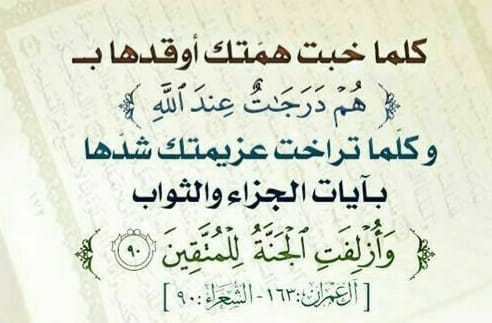 كلما خبت همتك أوقدها بـ
﴿هُمْ دَرَجَٰتٌ عِندَ ٱللَّهِ﴾
وكلّما تراخت عزيمتك شدّها
بآيات الجزاء والثواب
﴿وَأُزْلِفَتِ ٱلْجَنَّةُ لِلْمُتَّقِينَ ٩٠﴾
[آل عمران: ١٦٣ - الشعراء: ٩٠]